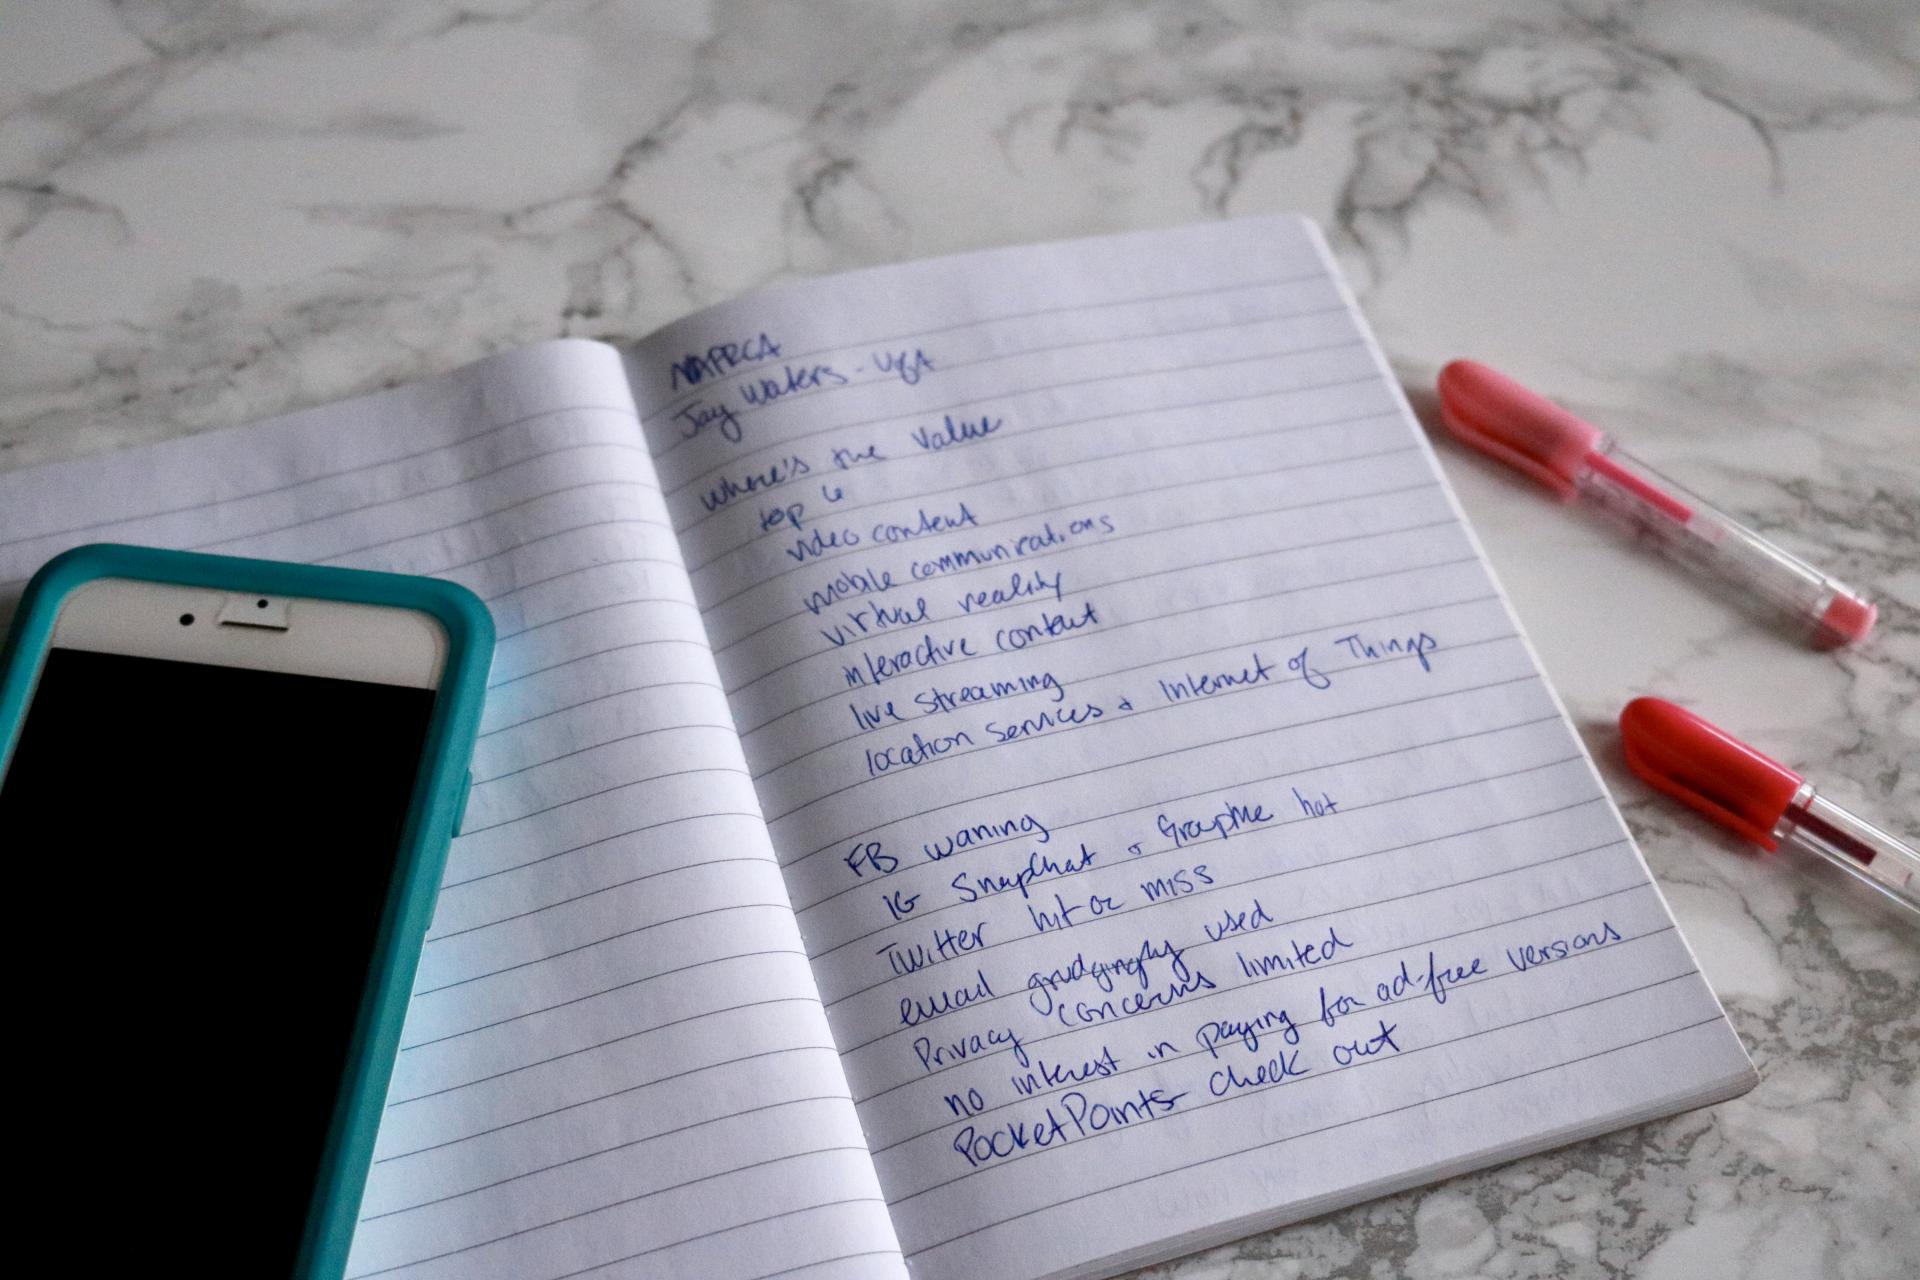 NAPRCA
Jay Waters - UGA
where's the value
top 6
video content
mobile communications
virtual reality
interactive content
live streaming
location services + Internet of Things
FB waning
IG Snapchat + GroupMe hot
Twitter hit or miss
email grudgingly used
Privacy concerns limited
no interest in paying for ad-free versions
PocketPoints - check out